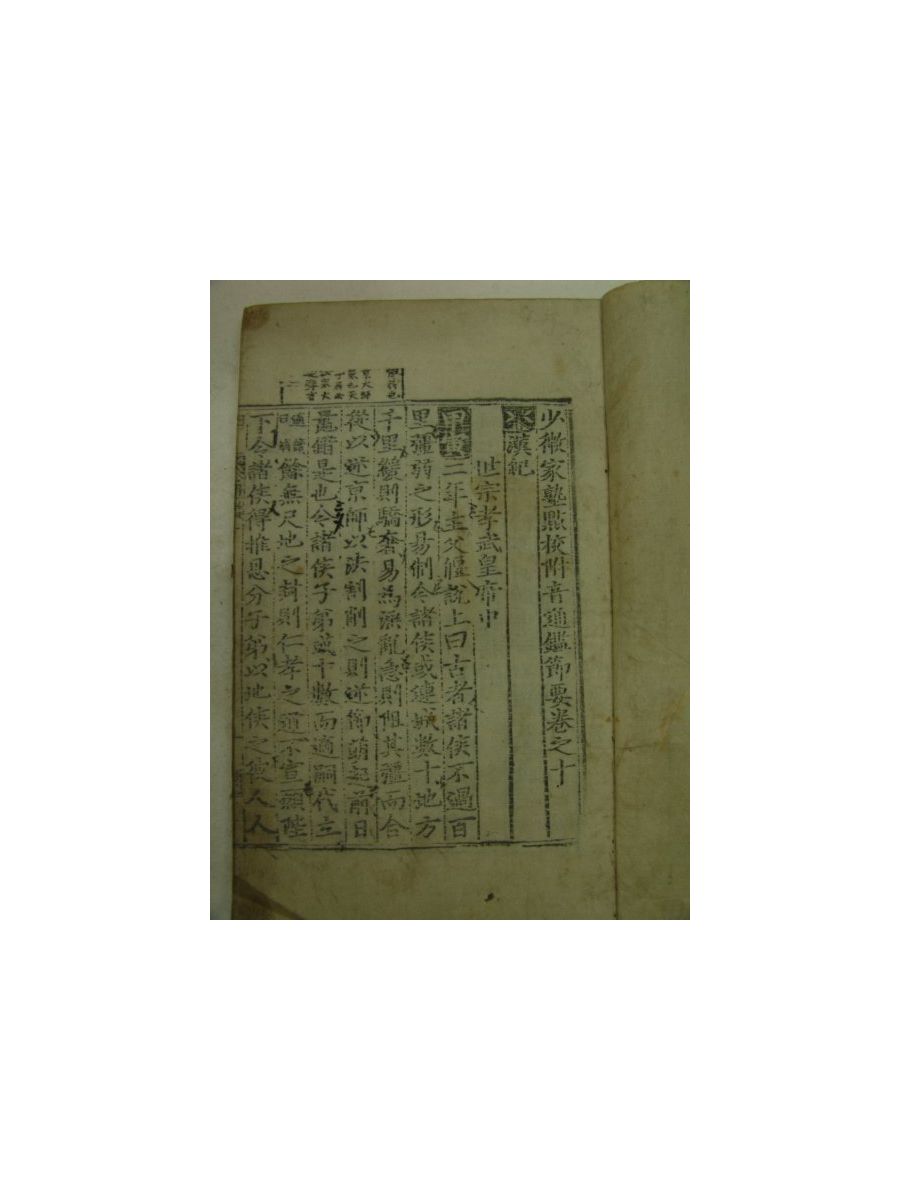 少微家塾點校附音通鑑節要卷之十
漢紀
世宗孝武皇帝中
甲寅二年主父偃說上曰古者諸侯不過百
里彊弱之形易制今諸侯或連城數十地方
千里緩則驕奢易爲淫亂急則阻其彊而合
從以逆京師以法割削之則逆節萌起前日
鼂錯是也今諸侯子弟或十數而適嗣代立
餘無尺地之封則仁孝之道不宣願陛
下令諸侯得推恩分子弟以地侯之彼人人